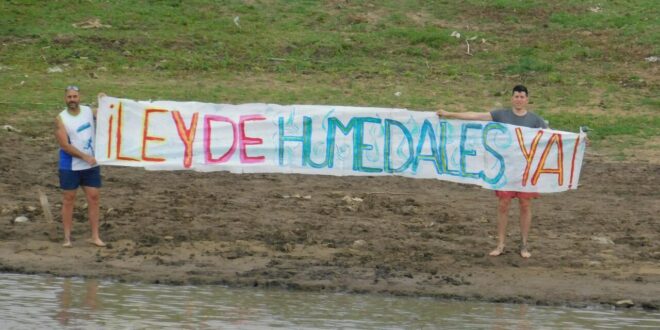 ¡LEY DE HUMEDALES YA!